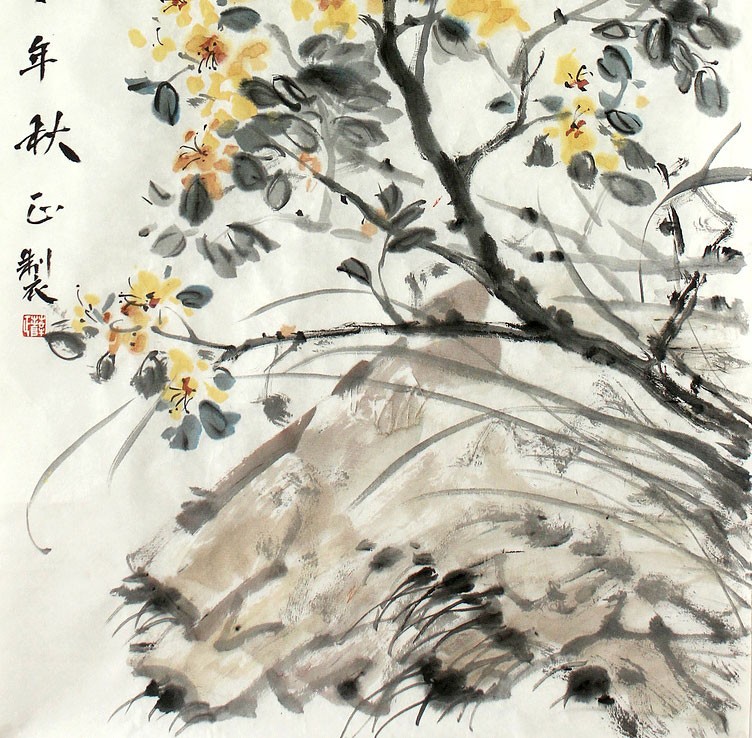 年秋正製